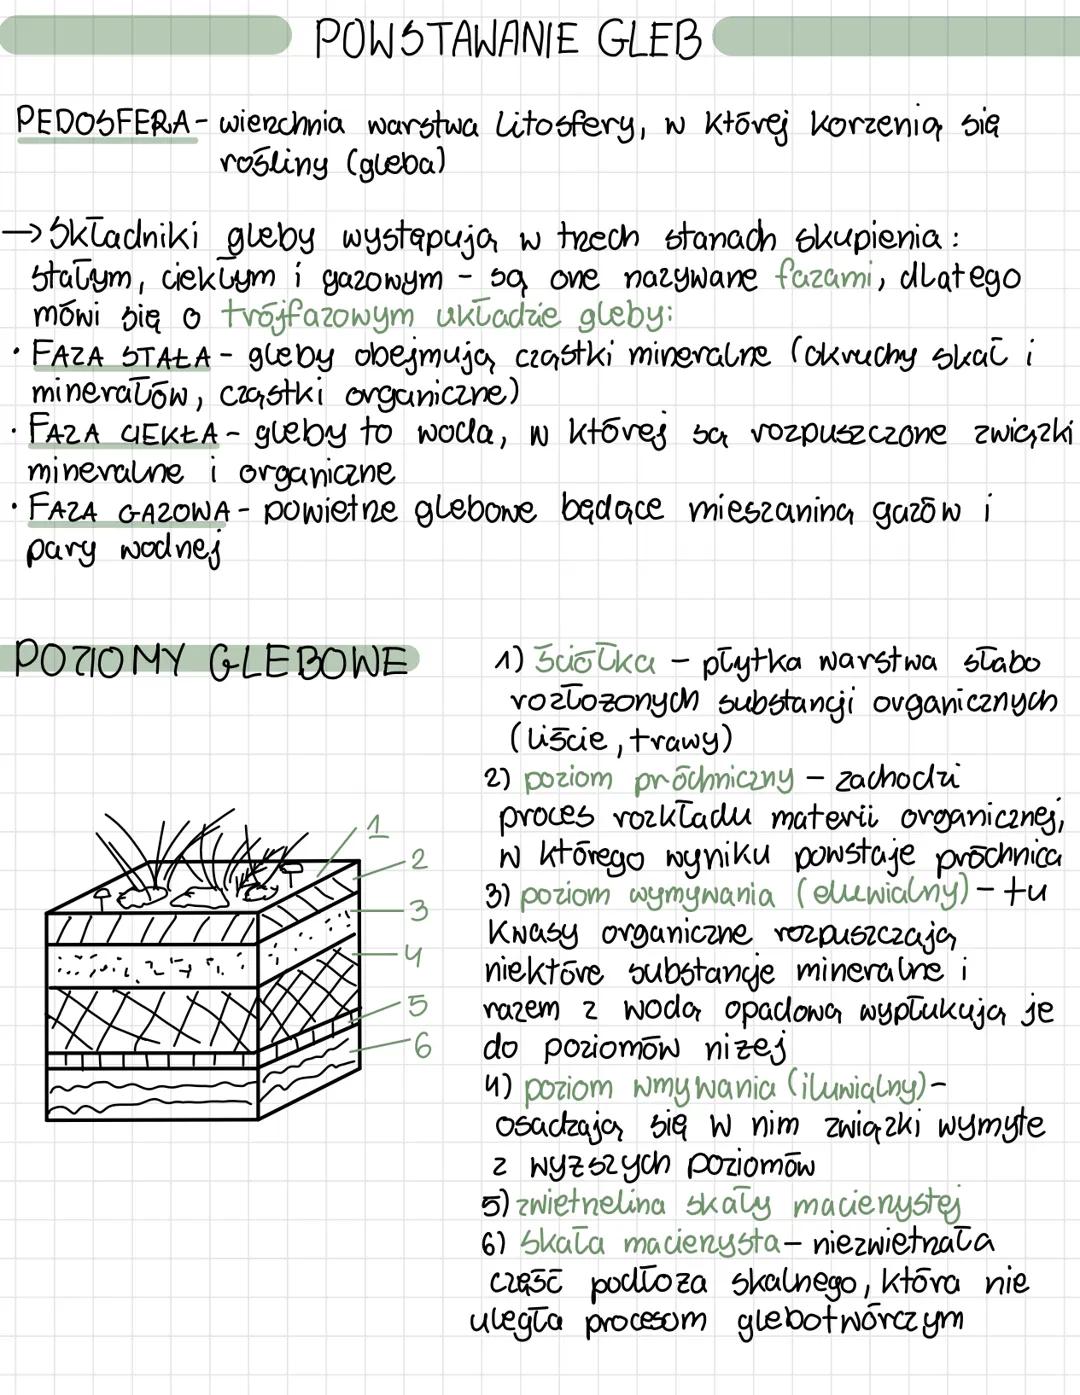 POWSTAWANIE GLEB
PEDOSFERA - wierzchnia warstwa litosfery, w której korzenią się
rośliny (gleba)
→ Składniki gleby występują w trzech stanach skupienia:
stałym, ciekłym i gazowym - są one nazywane fazami, dlatego
mówi się o trójfazowym układzie gleby:
• FAZA STAŁA - gleby obejmują cząstki mineralne (okruchy skał i
minerałów, cząstki organiczne)
• FAZA CIEKŁA - gleby to woda, w której są rozpuszczone związki
mineralne i organiczne
• FAZA GAZOWA - powietrze glebowe będące mieszaniną gazów i
pary wodnej
POZIOMY GLEBOWE
1
2
3
4
5
6
1) ściółka - płytka warstwa słabo
rozłożonych substancji organicznych
(liście, trawy)
2) poziom próchniczny - zachodzi
proces rozkładu materii organicznej,
w którego wyniku powstaje próchnica
3) poziom wymywania (eluwialny) - tu
kwasy organiczne rozpuszczają
niektóre substancje mineralne i
razem z wodą opadową wypłukują je
do poziomów niżej
4) poziom wmywania (iluwialny) -
osadzają się w nim związki wymyte
z wyższych poziomów
5) zwietrzelina skały macierzystej
6) skała macierzysta - niezwietrzała
część podłoża skalnego, która nie
uległa procesom glebotwórczym